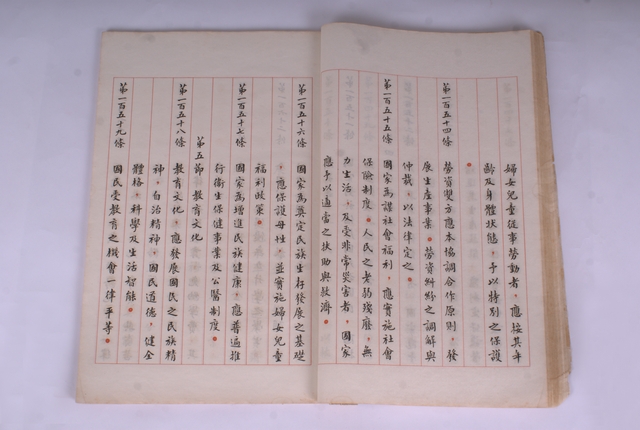 婦女兒童從事勞動者，應按其年
齡及身體狀態，予以特別之保護
。
第一百五十四條　勞資雙方應本協調合作原則，發
展生產事業。勞資糾紛之調解與
仲裁，以法律定之。
第一百五十五條　國家為謀社會福利，應實施社會
保險制度。人民之老弱殘廢，無
力生活，及受非常災害者，國家
應予以適當之扶助與救濟。
第一百五十六條　國家為奠定民族生存發展之基礎
，應保護母性，並實施婦女兒童
福利政策。
第一百五十七條　國家為增進民族健康，應普遍推
行衛生保健事業及公醫制度。
第五節　教育文化
第一百五十八條　教育文化，應發展國民之民族精
神，自治精神，國民道德，健全
體格，科學及生活智能。
第一百五十九條　國民受教育之機會一律平等。